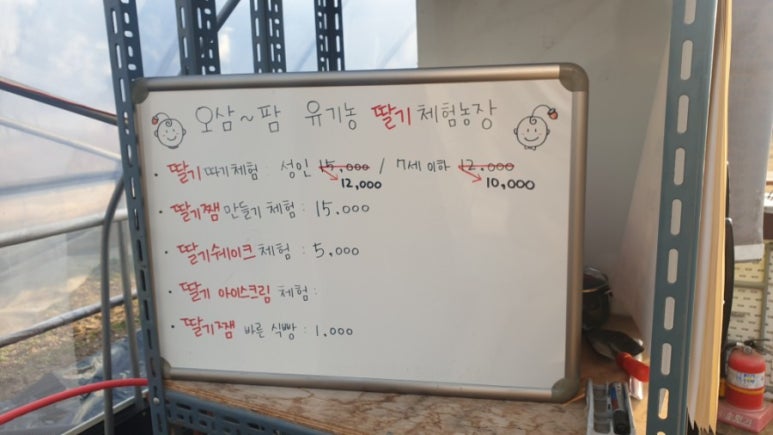 오삼~팜 유기농 딸기 체험농장
· 딸기 따기 체험 : 성인 15,000 / 7세 이하 12,000
12,000 10,000
· 딸기쨈 만들기 체험 : 15.000
· 딸기쉐이크 체험 : 5,000
· 딸기 아이스크림 체험 :
· 딸기쨈 바른 식빵 : 1,000